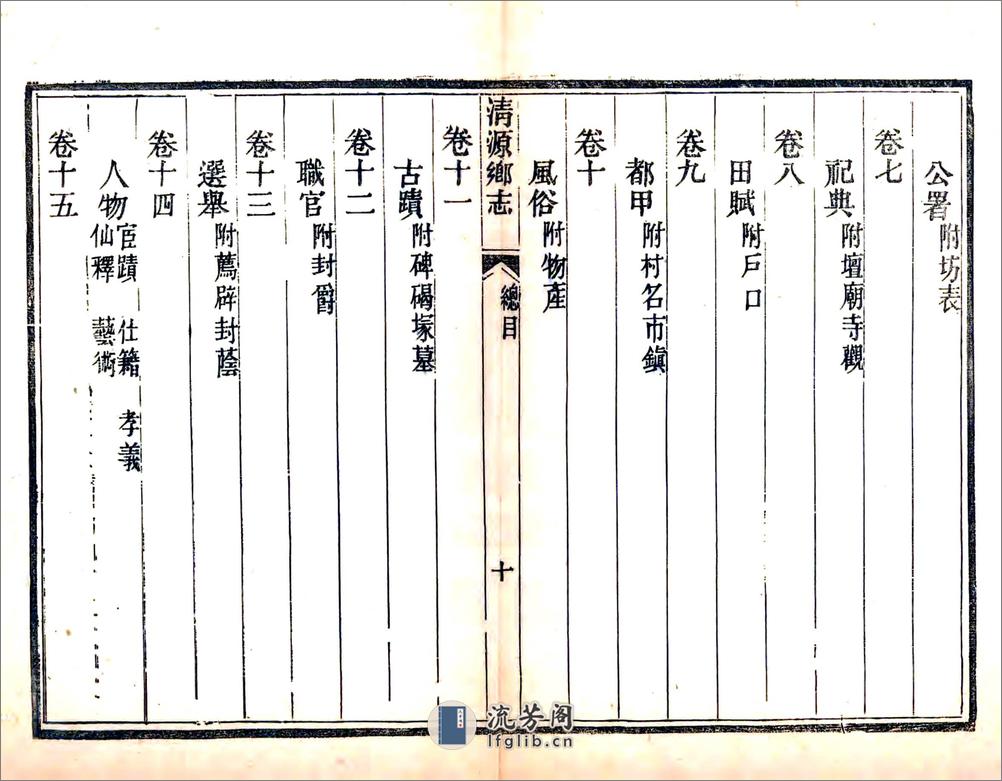 公署附坊表
卷七
祀典附壇廟寺觀
卷八
田賦附戶口
卷九
都甲附村名市鎮
卷十
風俗附物產
清源鄉志
總目
十
卷十一
古蹟附碑碣塚墓
卷十二
職官附封爵
卷十三
選舉附薦辟封蔭
卷十四
人物宦蹟 仕籍 孝義
仙釋 藝術
卷十五
流芳阁
lfglib.cn